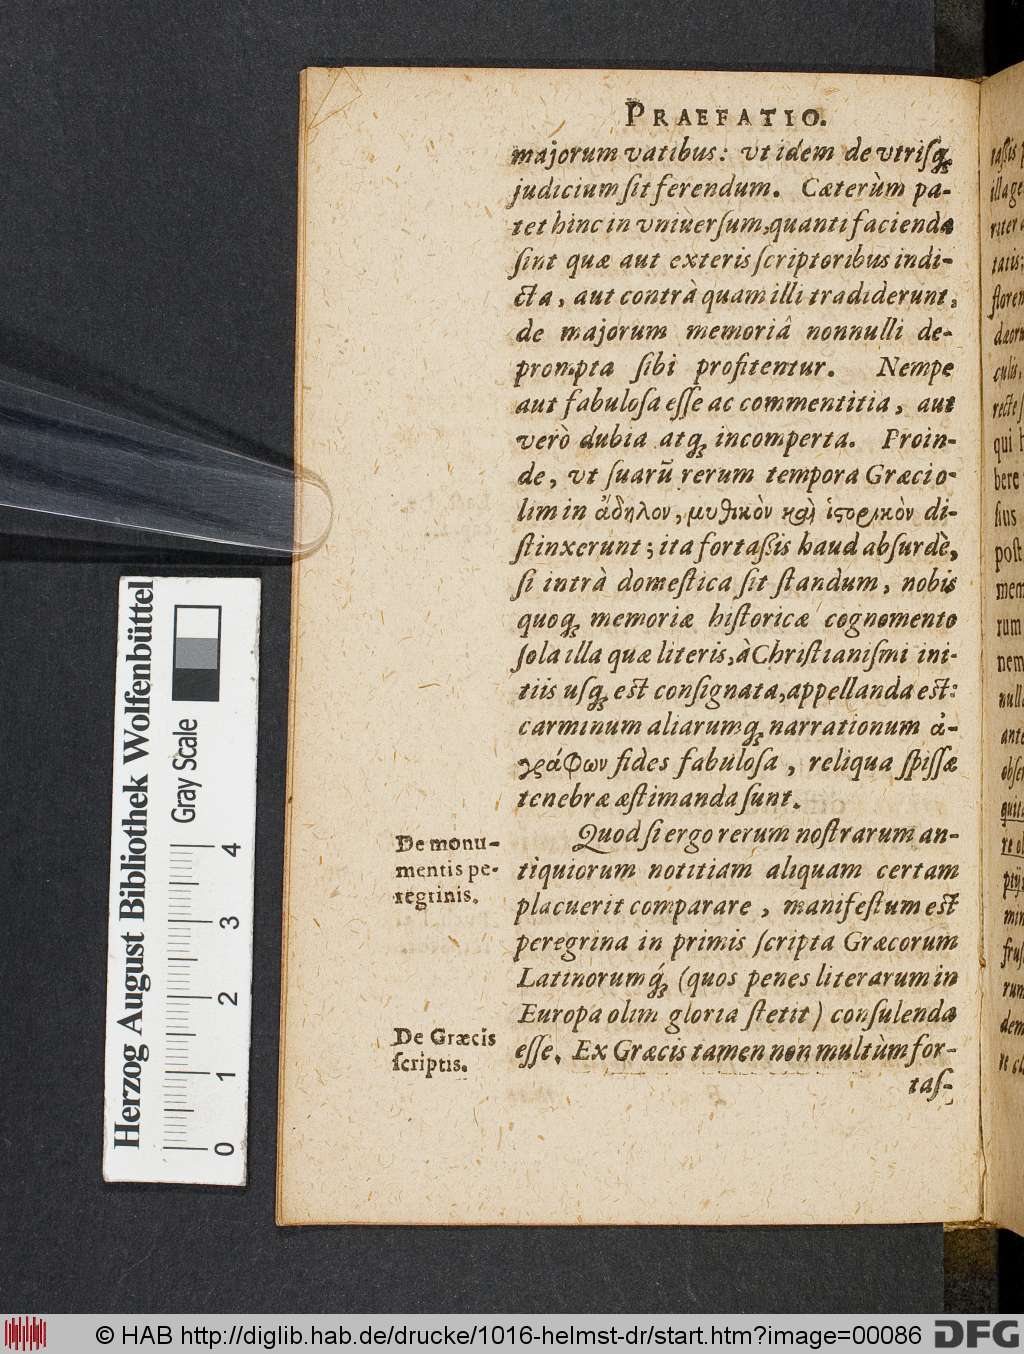 PRAEFATIO.
majorum vatibus: vt idem de vtrisq́;
judicium sit ferendum. Cæterùm pa-
tet hinc in vniuersum, quanti facienda
sint quæ aut exteris scriptoribus indi-
cta, aut contrà quam illi tradiderunt,
de majorum memoriâ nonnulli de-
prompta sibi profitentur. Nempe
aut fabulosa esse ac commentitia, aut
verò dubia atq; incomperta. Proin-
de, vt suarũ rerum tempora Græci o-
lim in ἄδηλον, μυθικὸν καὶ ἱστορικὸν di-
stinxerunt; ita fortassis haud absurdè,
si intrà domestica sit standum, nobis
quoq; memoriæ historicæ cognomento
sola illa quæ literis, à Christianismi ini-
tiis usq; est consignata, appellanda est:
carminum aliarumq; narrationum ἀ-
γράφων fides fabulosa, reliqua spissæ
tenebræ æstimanda sunt.
De monu-
mentis pe-
regrinis.
Quod si ergo rerum nostrarum an-
tiquiorum notitiam aliquam certam
placuerit comparare, manifestum est
peregrina in primis scripta Græcorum
Latinorumq́; (quos penes literarum in
Europa olim gloria stetit) consulenda
esse. Ex Græcis tamen non multùm for-
De Græcis
scriptis.
tas-
Herzog August Bibliothek Wolfenbüttel
Gray Scale
0 1 2 3 4
© HAB http://diglib.hab.de/drucke/1016-helmst-dr/start.htm?image=00086
DFG